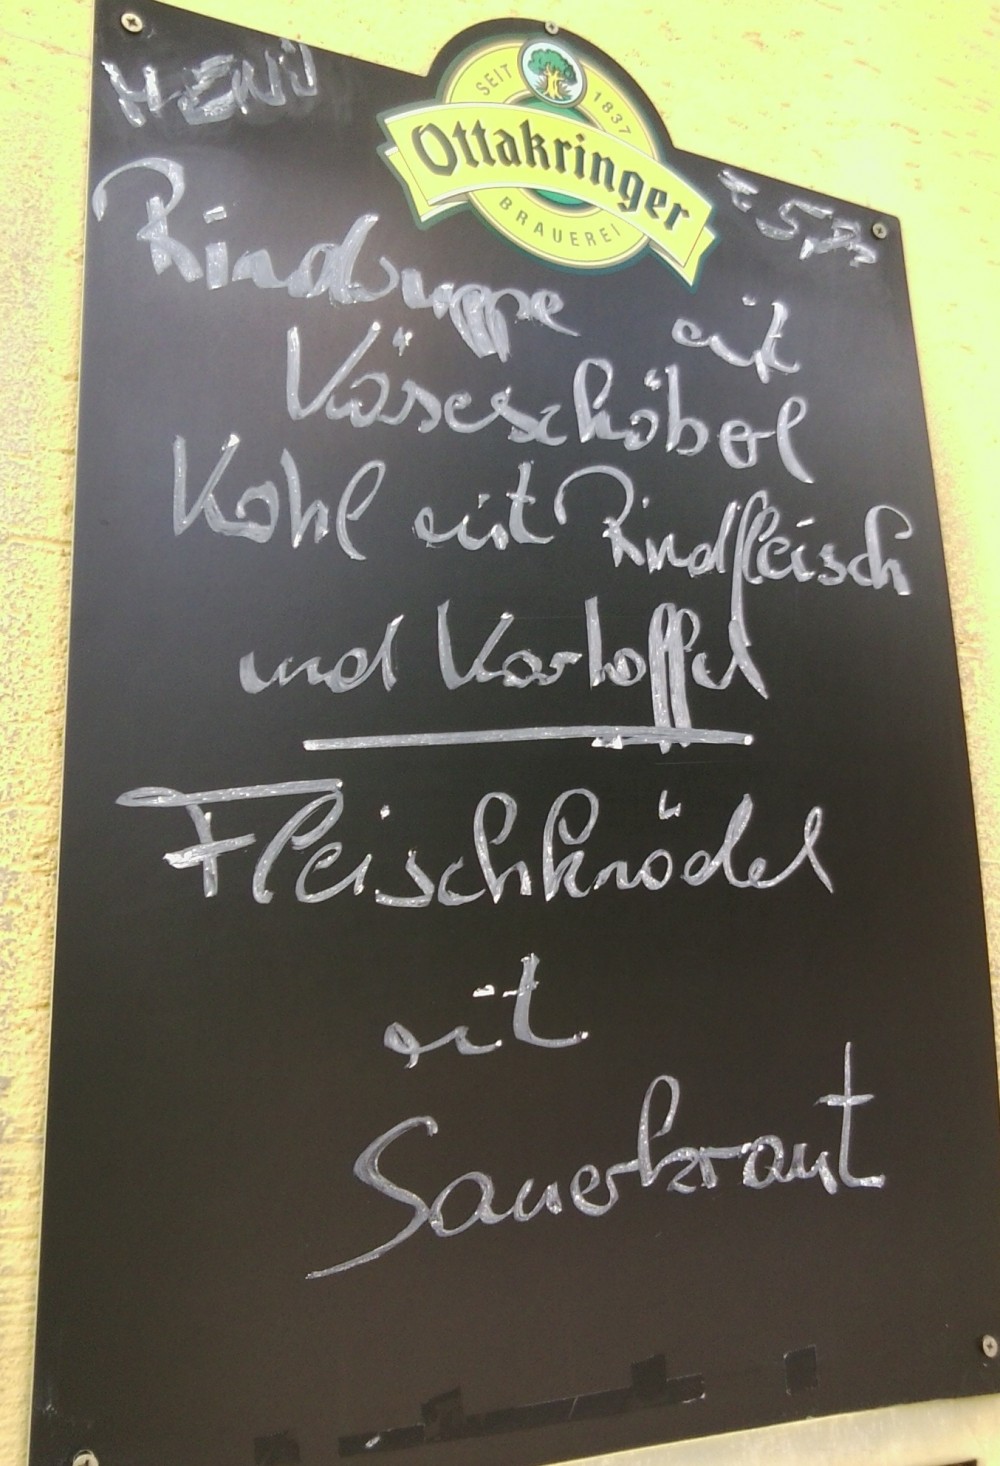 SEIT 1837
Ottakringer
BRAUEREI
MENÜ
Rindsuppe mit
Käseschöberl
Kohl mit Rindfleisch
und Kartoffel
Fleischknödel
mit
Sauerkraut